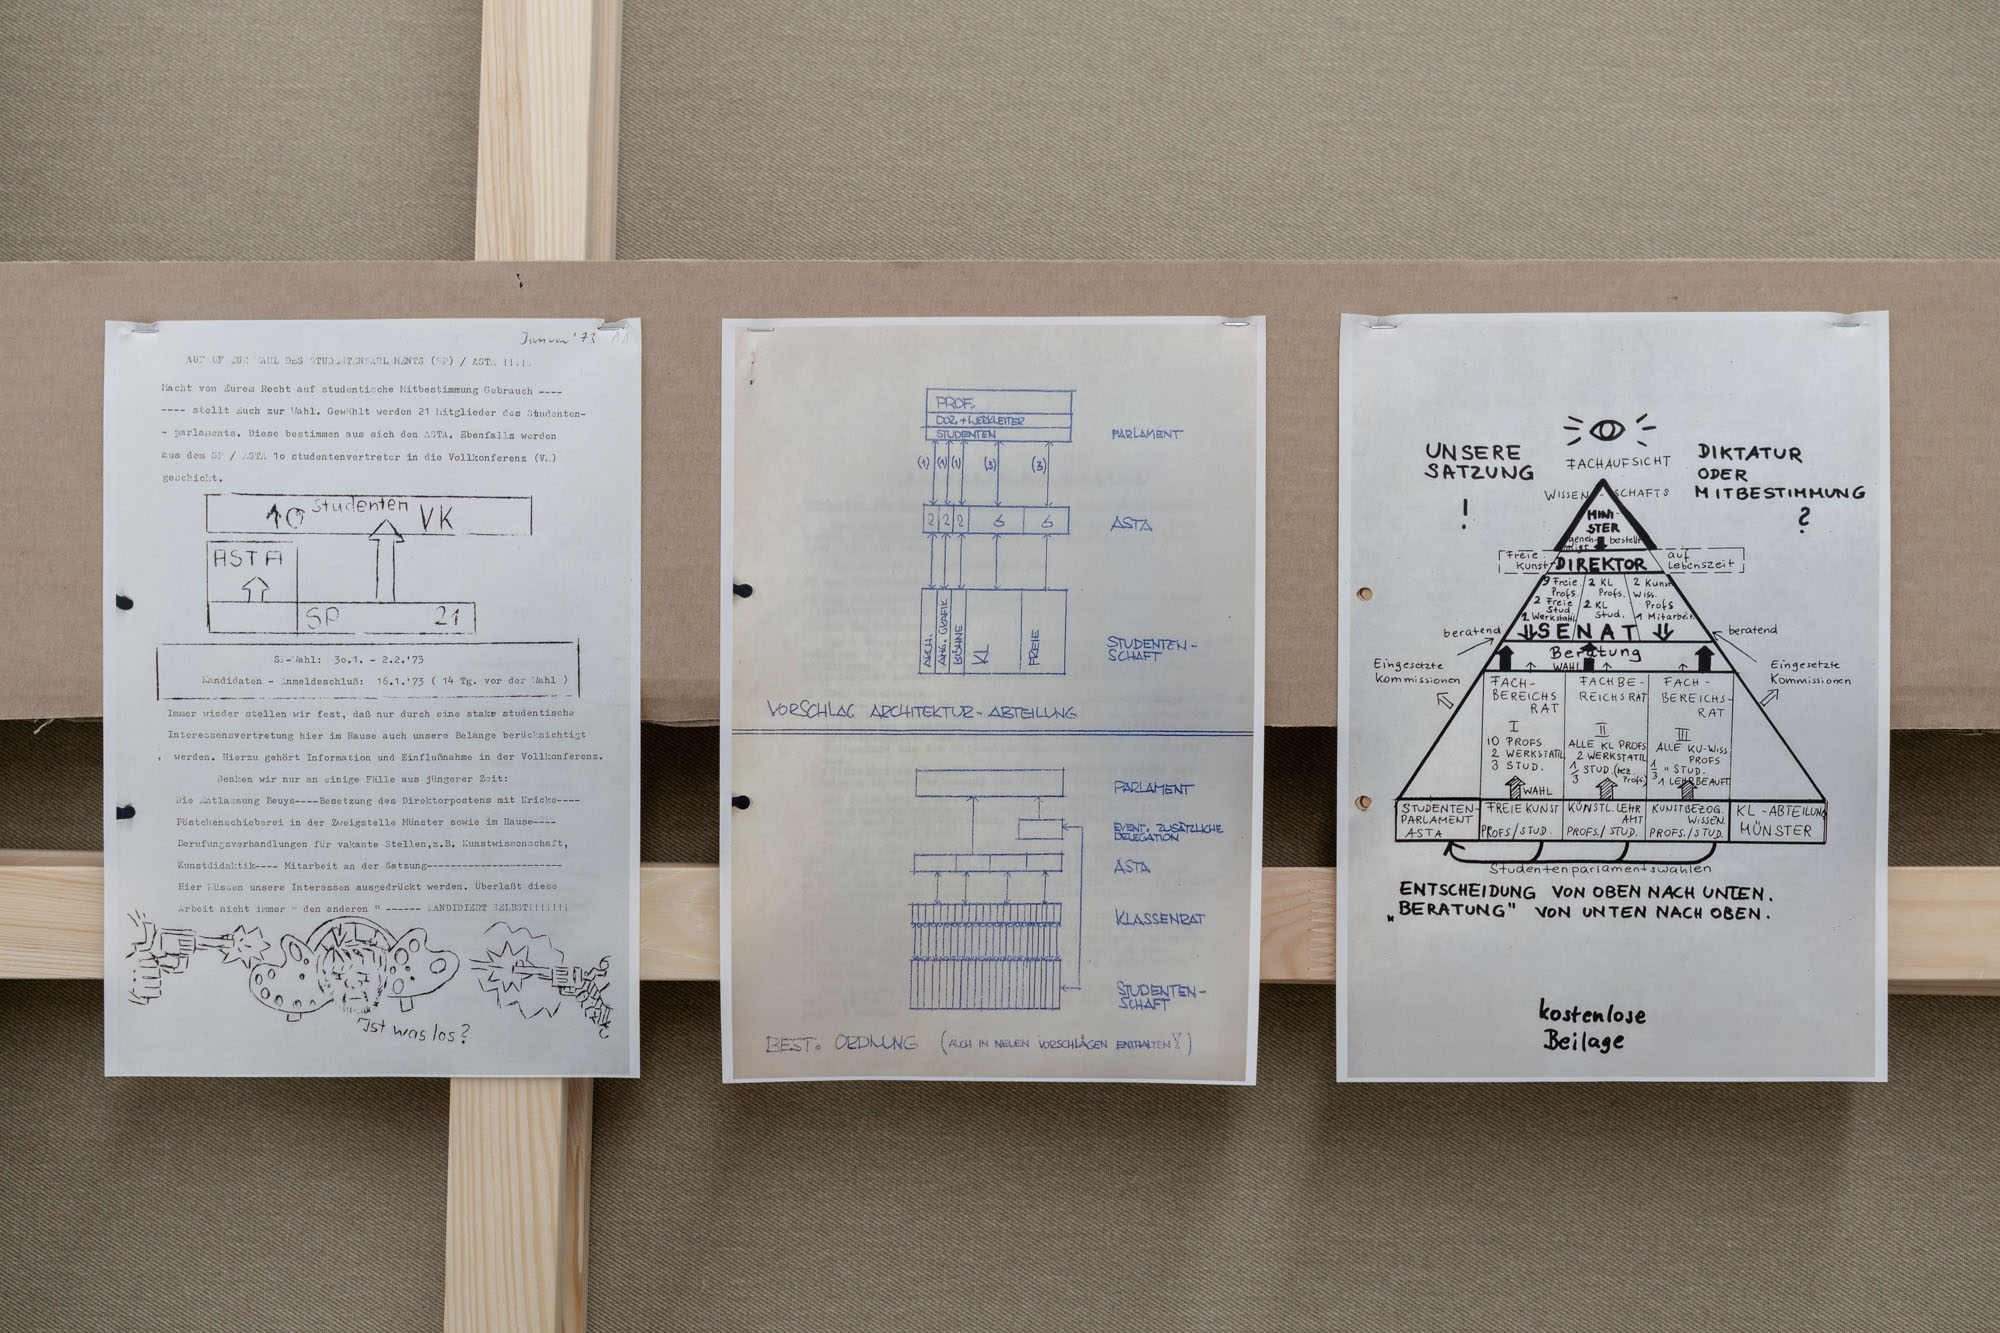 Januar '73 11
AUFRUF ZUR WAHL DES STUDENTENPARLAMENTS (SP) / ASTA !!!!!
Macht von Eurem Recht auf studentische Mitbestimmung Gebrauch ----
---- stellt Euch zur Wahl. Gewählt werden 21 Mitglieder des Studenten-
- parlaments. Diese bestimmen aus sich den ASTA. Ebenfalls werden
aus dem SP / ASTA 1o studentenvertreter in die Vollkonferenz (VK)
geschickt.
10 Studenten VK
ASTA
SP 21
SP-Wahl: 3o.1. - 2.2.'73
Kandidaten - Anmeldeschluß: 16.1.'73 ( 14 Tg. vor der Wahl )
Immer wieder stellen wir fest, daß nur durch eine stake studentische
Interessensvertretung hier im Hause auch unsere Belange berücksichtigt
werden. Hierzu gehört Information und Einflußnahme in der Vollkonferenz.
Denken wir nur an einige Fälle aus jüngerer Zeit:
Die Entlassung Beuys----Besetzung des Direktorpostens mit Kricke----
Pöstchenschieberei in der Zweigstelle Münster sowie im Hause----
Berufungsverhandlungen für vakante Stellen,z.B. Kunstwissenschaft,
Kunstdidaktik---- Mitarbeit an der Satzung----------------------
Hier Müssen unsere Interessen ausgedrückt werden. Überlaßt diese
Arbeit nicht immer " den anderen " ------ KANDIDIERT SELBST!!!!!!!
Ist was los?
PROF.
DOZ. + WERKLEITER
STUDENTEN
PARLAMENT
(1) (1) (1) (3) (3)
2 2 2 6 6
ASTA
ARCH.
ANG. GRAFIK
BÜHNE
KL
FREIE
STUDENTEN-
SCHAFT
VORSCHLAG ARCHITEKTUR-ABTEILUNG
PARLAMENT
EVENT. ZUSÄTZLICHE
DELEGATION
ASTA
KLASSENRAT
STUDENTEN-
SCHAFT
BEST. ORDNUNG (AUCH IN NEUEN VORSCHLÄGEN ENTHALTEN)
UNSERE
SATZUNG
!
FACHAUFSICHT
DIKTATUR
ODER
MITBESTIMMUNG
?
WISSEN-SCHAFTS
MINI-
STER
genehmigt bestellt
Freie Kunst
DIREKTOR
auf Lebenszeit
9 Freie Profs.
2 Freie Stud.
1 Werkstattl.
2 KL Profs.
2 KL Stud.
2 Kunst Wiss. Profs
1 Mitarbeit.
SENAT
beratend
beratend
Beratung
WAHL
Eingesetzte
Kommissionen
Eingesetzte
Kommissionen
FACH-
BEREICHS
RAT
I
10 PROFS
2 WERKSTATTL
3 STUD.
FACHBE-
REICHSRAT
II
ALLE KL PROFS
2 WERKSTATTL
1/3 STUD. (bez. Profs.)
FACH-
BEREICHS-
RAT
III
ALLE KU-WISS
PROFS
1/3 " STUD.
1 LEHRBEAUFT
WAHL
STUDENTEN-
PARLAMENT
ASTA
FREIE KUNST
PROFS/STUD.
KÜNSTL. LEHR
AMT
PROFS./STUD.
KUNSTBEZOG.
WISSEN.
PROFS./STUD.
KL-ABTEILUNG
MÜNSTER
Studentenparlamentswahlen
ENTSCHEIDUNG VON OBEN NACH UNTEN.
„BERATUNG" VON UNTEN NACH OBEN.
kostenlose
Beilage